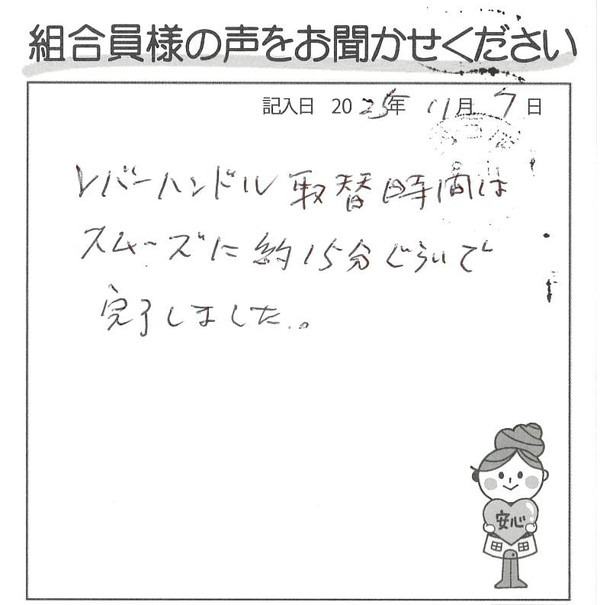 組合員様の声をお聞かせください
記入日 2025年 11月 7日
レバーハンドル 取替時間は
スムーズに約15分ぐらいで
完了しました。
安心